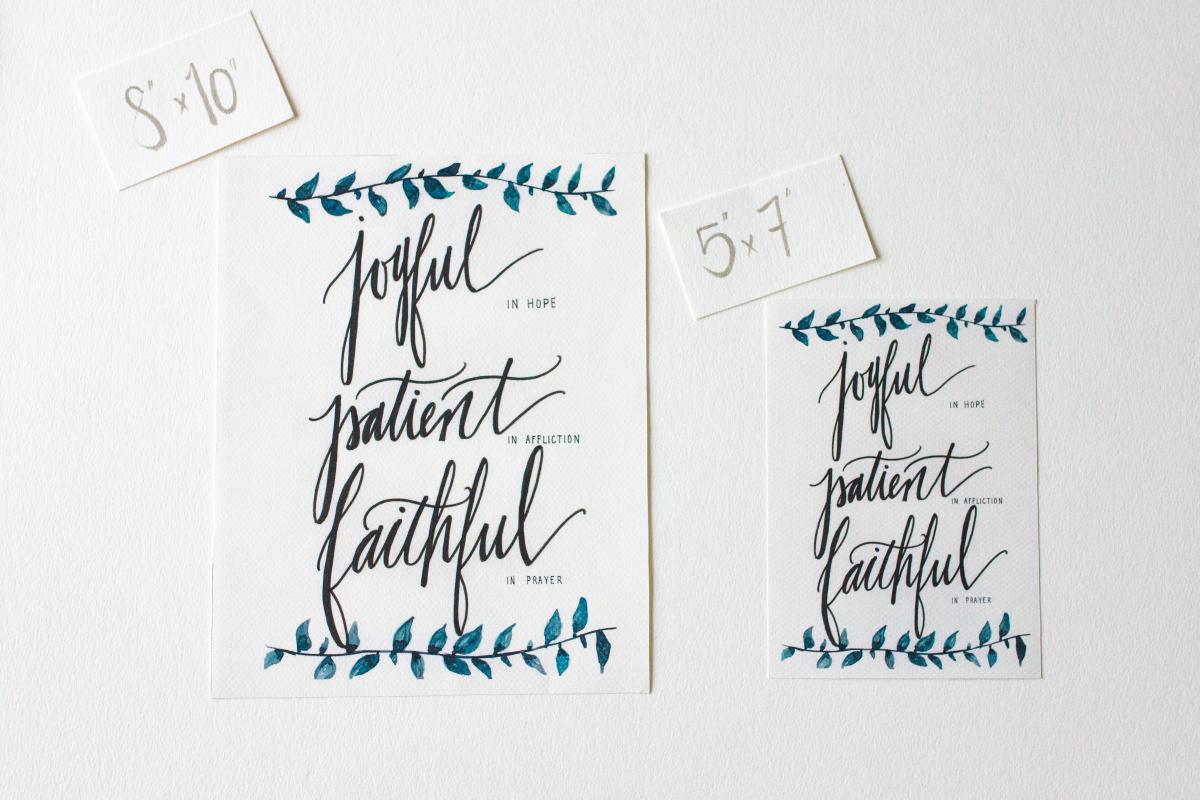 8" x 10"
joyful
IN HOPE
patient
IN AFFLICTION
faithful
IN PRAYER
5" x 7"
joyful
IN HOPE
patient
IN AFFLICTION
faithful
IN PRAYER